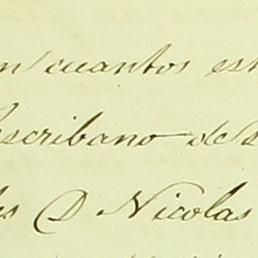 en cuantos est
Escribano de S
es D Nicolas